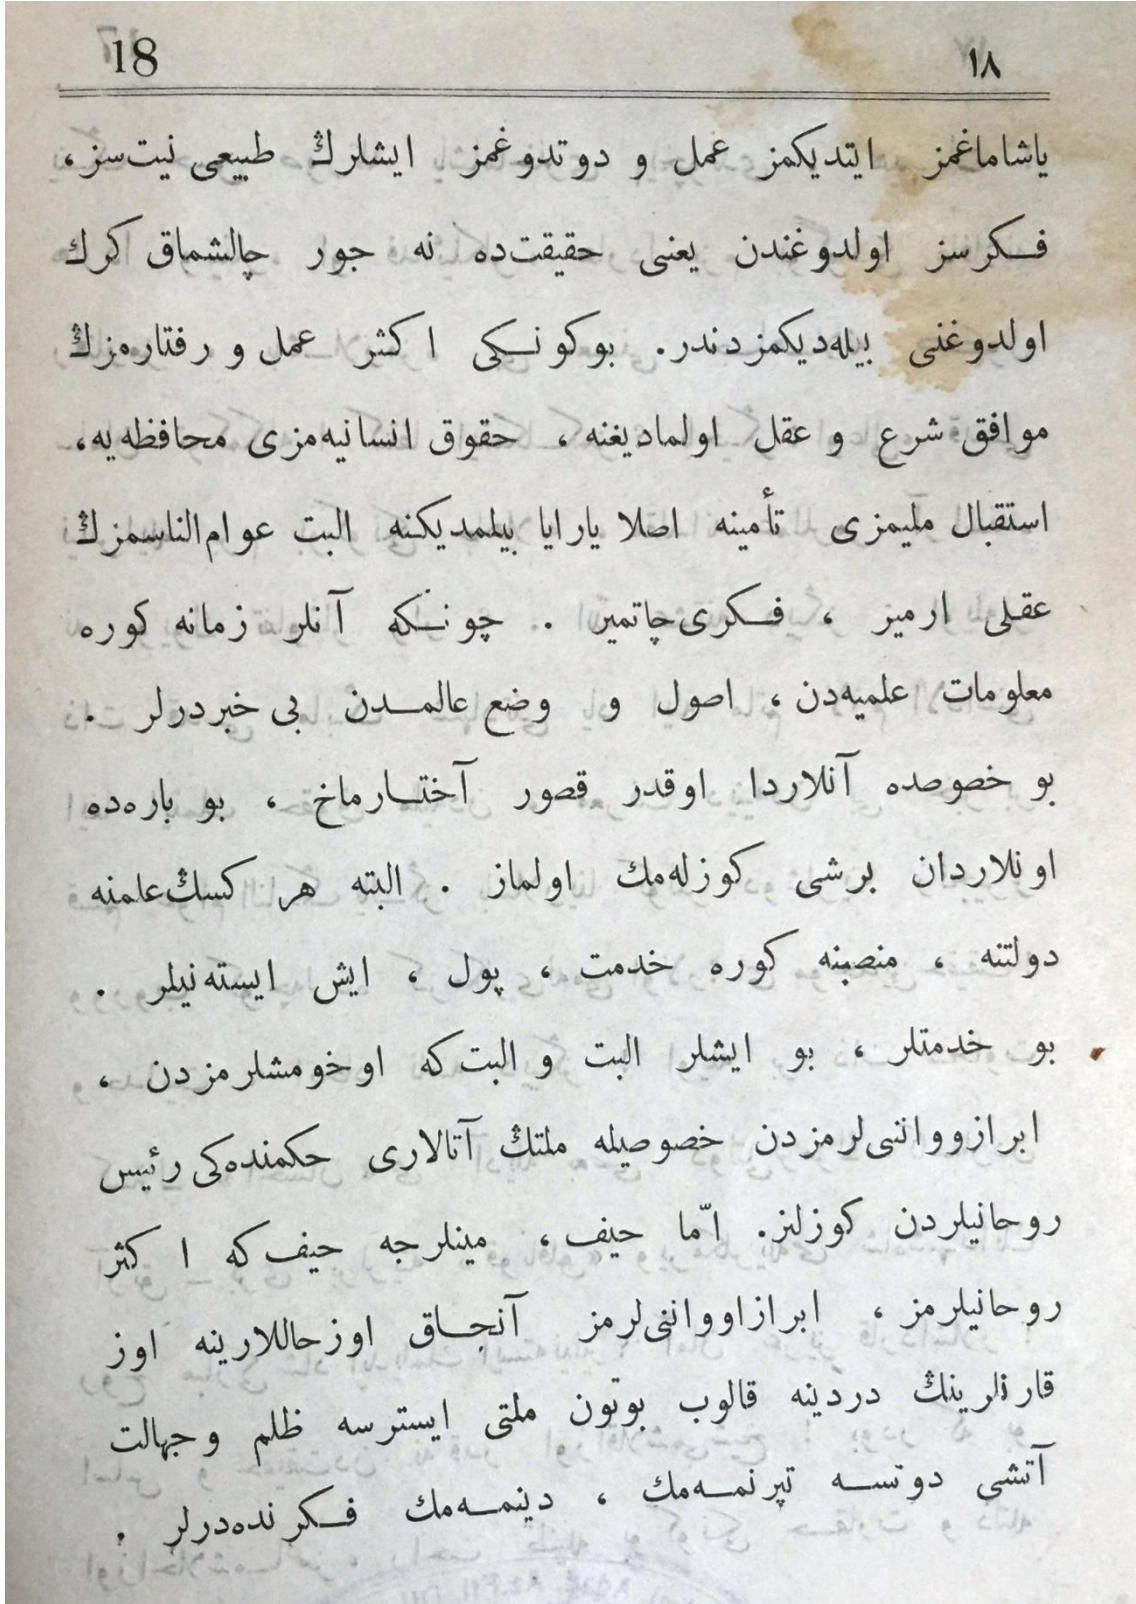 18 ١٨
ياشاماغمز ايتديكمز عمل و دوتدوغمز ايشلرڭ طبيعى نيت‌سز،
فـكرسز اولدوغندن يعنى حقيقت‌ده نه جور چالشماق كرك
اولدوغنى بيله‌ديكمزدندر. بوكونـكى اكثر عمل و رفتاره‌مزڭ
موافق شرع و عقل اولماديغنه ، حقوق انسانيه‌مزى محافظه‌يه،
استقبال مليمزى تأمينه اصلا يارايا بيلمديكنه البت عوام‌الناسمزڭ
عقلى ارميز ، فـكرى‌چاتمير . چونـكه آنلر زمانه كوره
معلومات علميه‌دن ، اصول و وضع عالمـدن بى خبردرلر .
بو خصوصده آنلاردا اوقدر قصور آختـارماخ ، بو باره‌ده
اونلاردان برشى كوزله‌مك اولماز . البته هر كسڭ‌علمنه
دولتنه ، منصبنه كوره خدمت ، پول ، ايش ايسته‌نيلر .
بو خدمتلر ، بو ايشلر البت و البت‌كه اوخومشلرمزدن ،
ابرازوواننى‌لرمزدن خصوصيله ملتڭ آتالارى حكمنده‌كى رئيس
روحانيلردن كوزلنز. امّا حيف، مينلرجه حيف‌كه اكثر
روحانيلرمز ، ابرازاوواننى‌لرمز آنجـاق اوزحاللارينه اوز
قارنلرينڭ دردينه قالوب بوتون ملتى ايسترسه ظلم وجهالت
آتشى دوتسـه تپرنمـه‌مك ، دينمـه‌مك فـكرنده‌درلر .